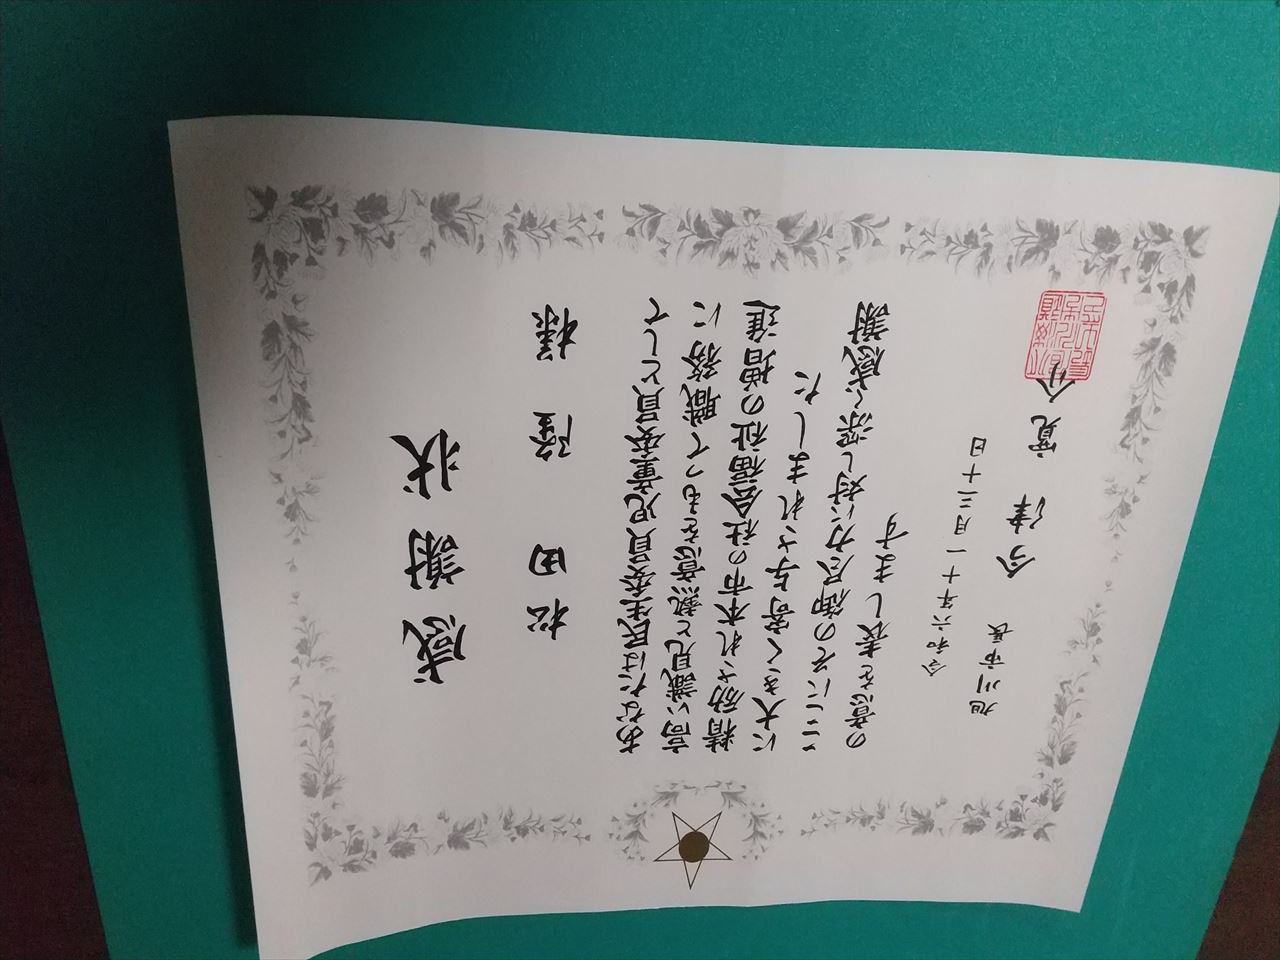 感謝状
松田 隆 様
あなたは民生委員児童委員として
高い識見と熱意をもって職務に
精励され本市の社会福祉の増進
に大きく寄与されました
ここにその御尽力に対し深く感謝
の意を表します
令和六年十一月三十日
旭川市長 今津寛介